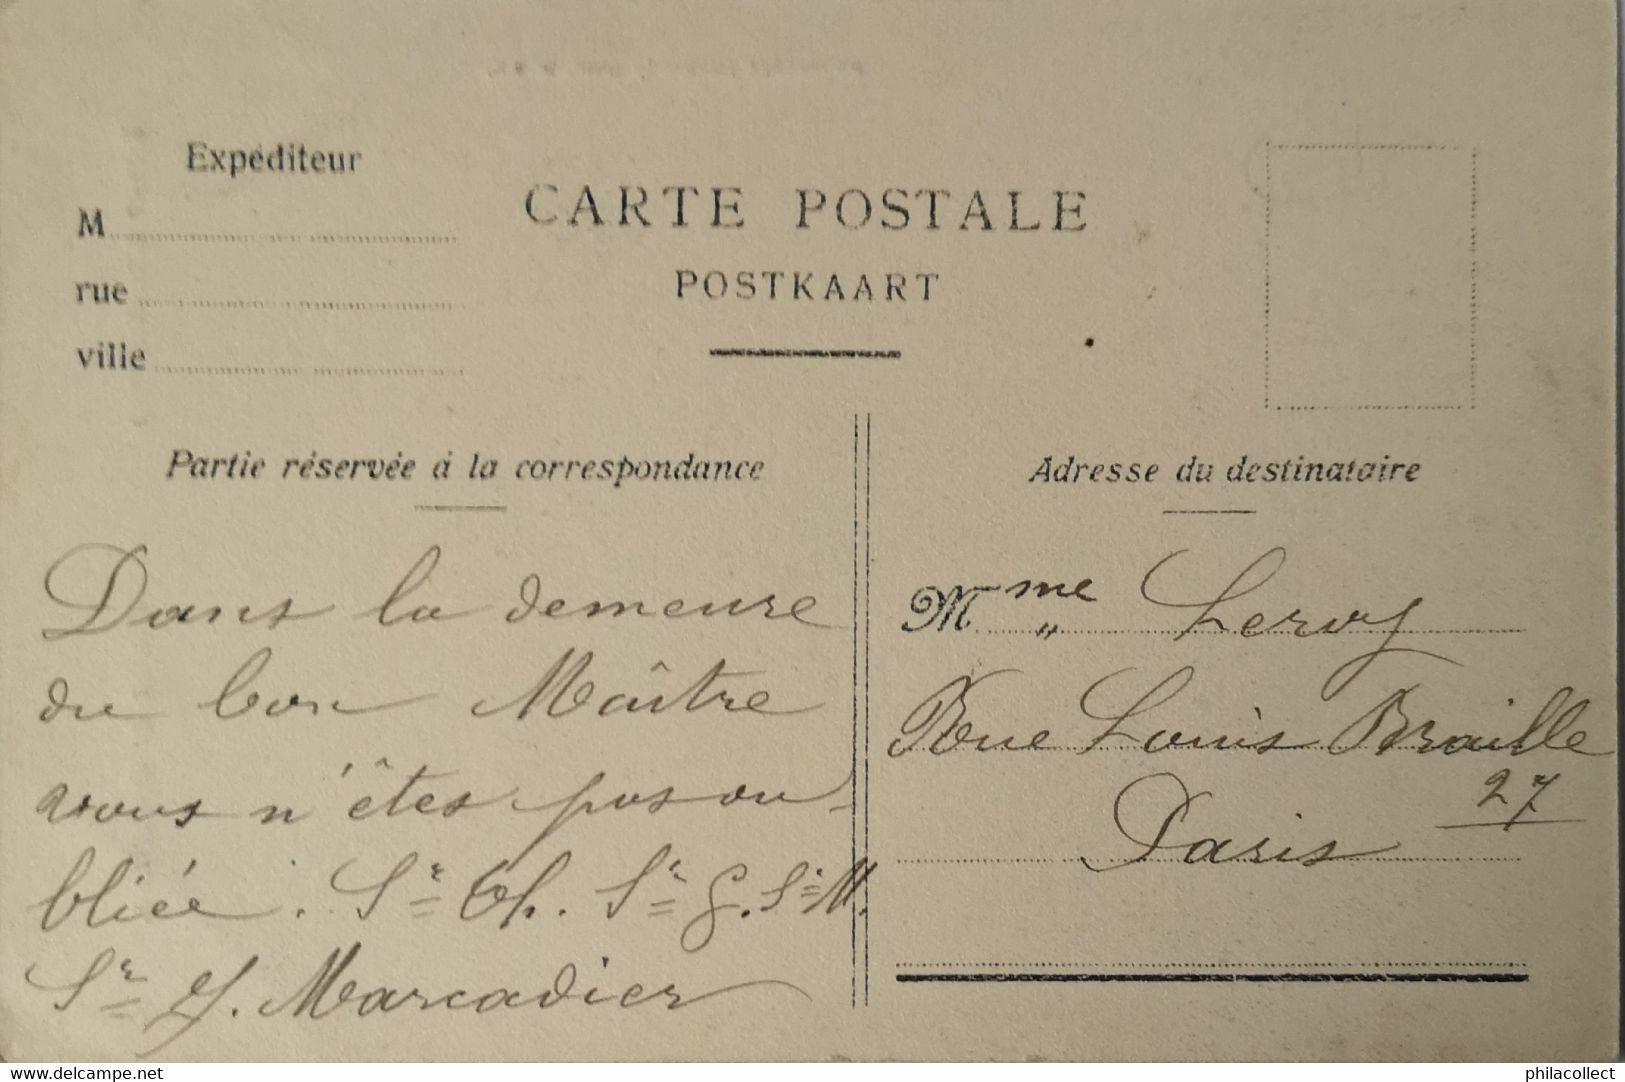 Expéditeur
M
rue
ville
CARTE POSTALE
POSTKAART
Partie réservée à la correspondance
Dans la demeure
du bon Maître
vous n'êtes pas ou-
bliée. Sr Th. Sr G. Sr M.
Sr J. Marcadier
Adresse du destinataire
Mme Leroy
Rue Louis Braille
27
Paris
www.delcampe.net
philacollect